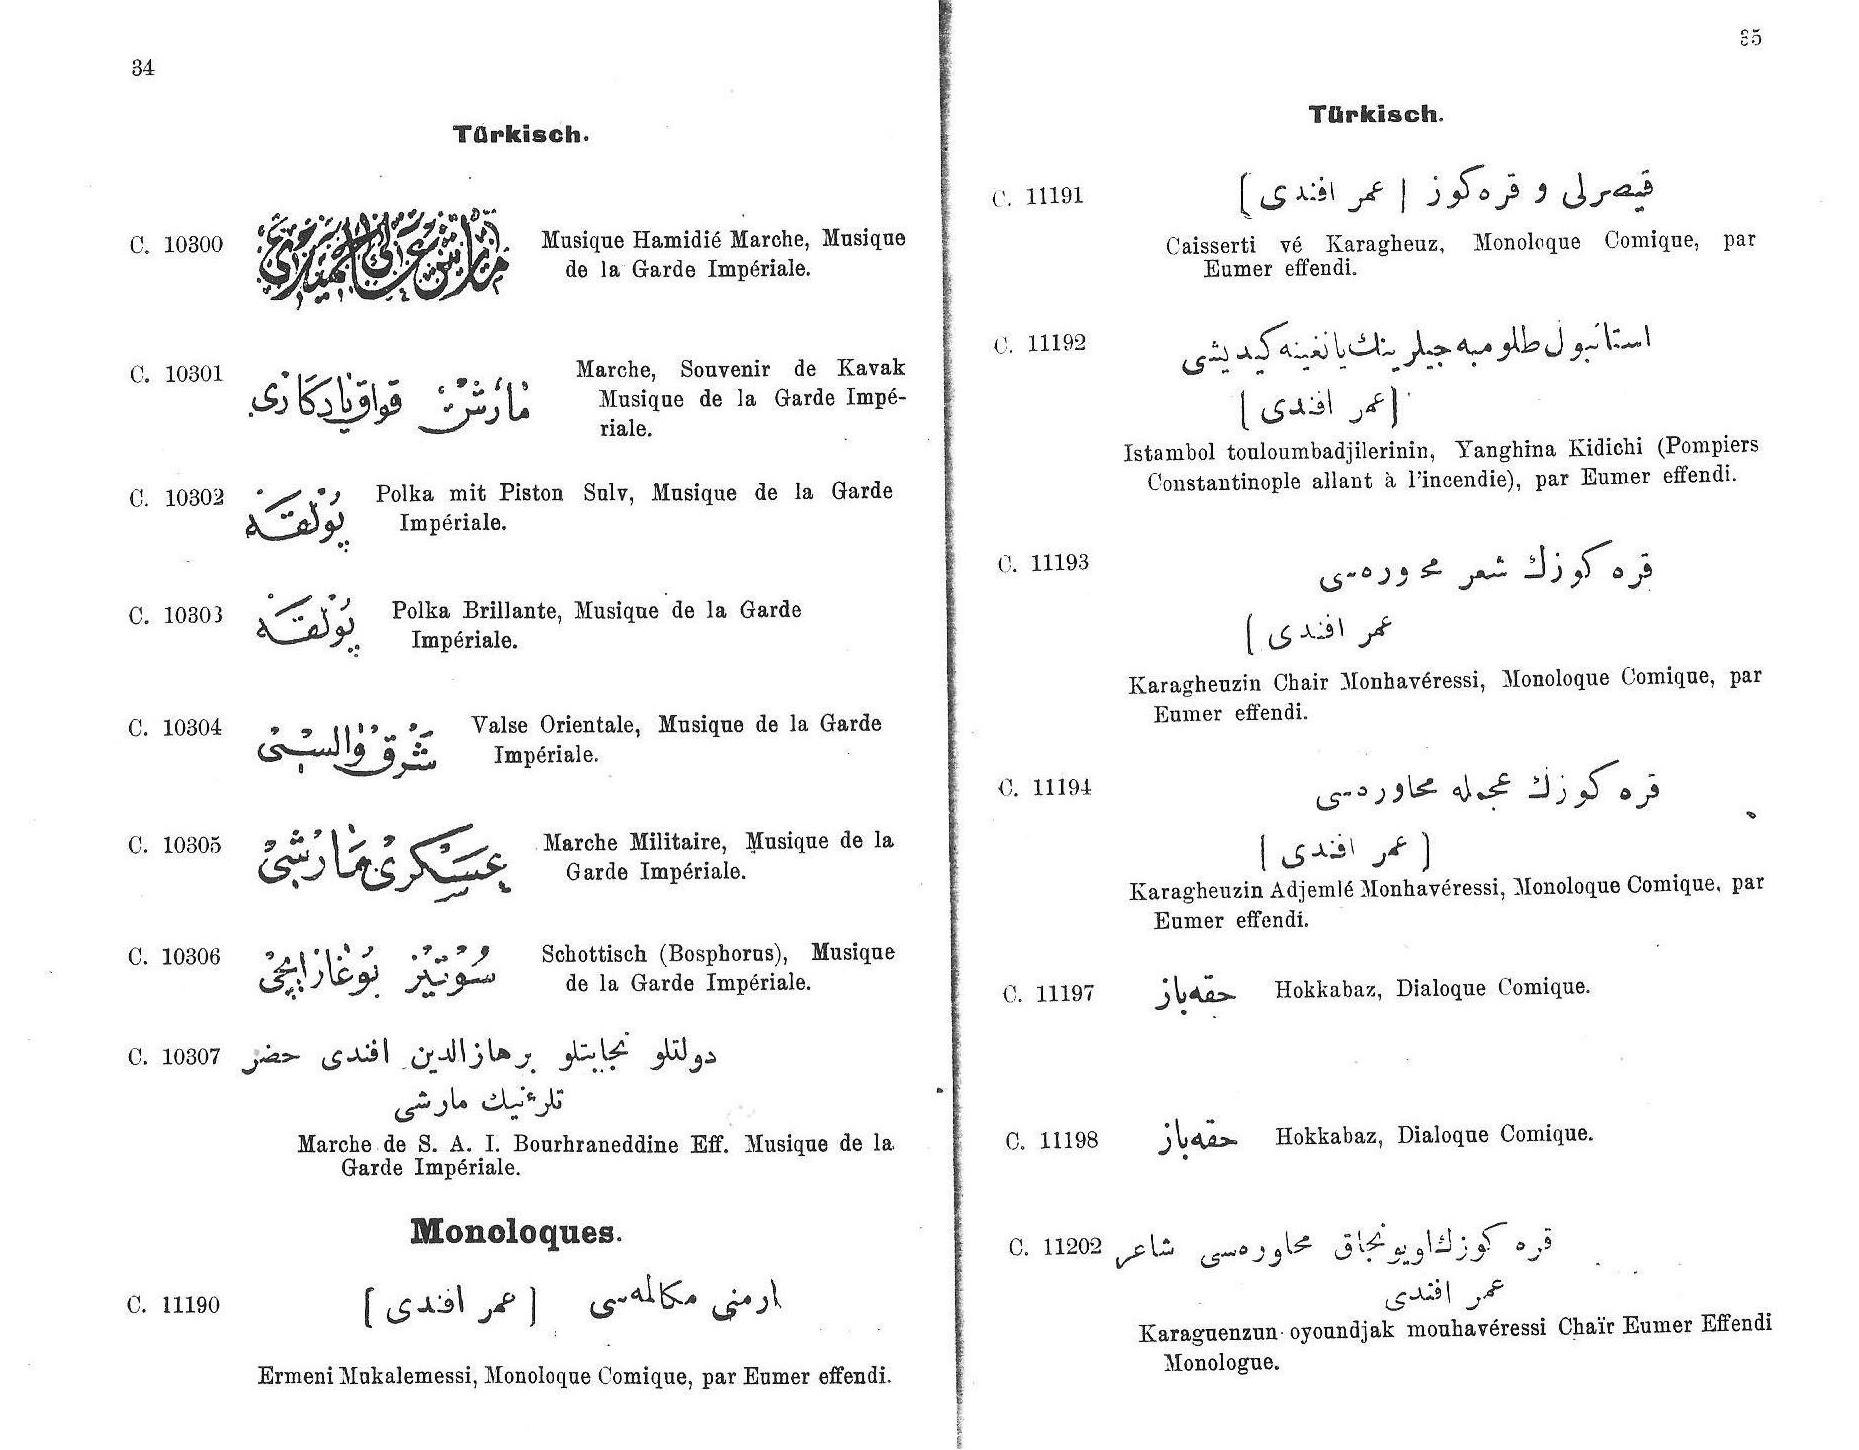 34
Türkisch.
C. 10300
Musique Hamidié Marche, Musique
de la Garde Impériale.
C. 10301 مارش قواق يادكارى
Marche, Souvenir de Kavak
Musique de la Garde Impé-
riale.
C. 10302 پولقه Polka mit Piston Sulv, Musique de la Garde
Impériale.
C. 10303 پولقه Polka Brillante, Musique de la Garde
Impériale.
C. 10304 شرق والسى Valse Orientale, Musique de la Garde
Impériale.
C. 10305 عسكرى مارشى Marche Militaire, Musique de la
Garde Impériale.
C. 10306 بوغاز ايچى Schottisch (Bosphorus), Musique
de la Garde Impériale.
C. 10307 دولتلو نجابتلو برهان الدين افندى حضر
تلرينك مارشى
Marche de S. A. I. Bourhraneddine Eff. Musique de la
Garde Impériale.
Monoloques.
C. 11190 ارمنى مكالمه‌سى [عمر افندى]
Ermeni Mukalemessi, Monoloque Comique, par Eumer effendi.
35
Türkisch.
C. 11191 قيصرلى و قره كوز [عمر افندى]
Caisserti vé Karagheuz, Monoloque Comique, par
Eumer effendi.
C. 11192 استانبول طلومبه جيلرينك يانغينه كيديشى
[عمر افندى]
Istambol touloumbadjilerinin, Yanghina Kidichi (Pompiers
Constantinople allant à l'incendie), par Eumer effendi.
C. 11193 قره كوزك شعر محاوره‌سى
عمر افندى]
Karagheuzin Chair Monhavéressi, Monoloque Comique, par
Eumer effendi.
C. 11194 قره كوزك عجمله محاوره‌سى
[عمر افندى]
Karagheuzin Adjemlé Monhavéressi, Monoloque Comique, par
Eumer effendi.
C. 11197 حقه‌باز Hokkabaz, Dialoque Comique.
C. 11198 حقه‌باز Hokkabaz, Dialoque Comique.
C. 11202 قره كوزك اويونجاق محاوره‌سى شاعر
عمر افندى
Karaguenzun oyoundjak mouhavéressi Chaïr Eumer Effendi
Monologue.